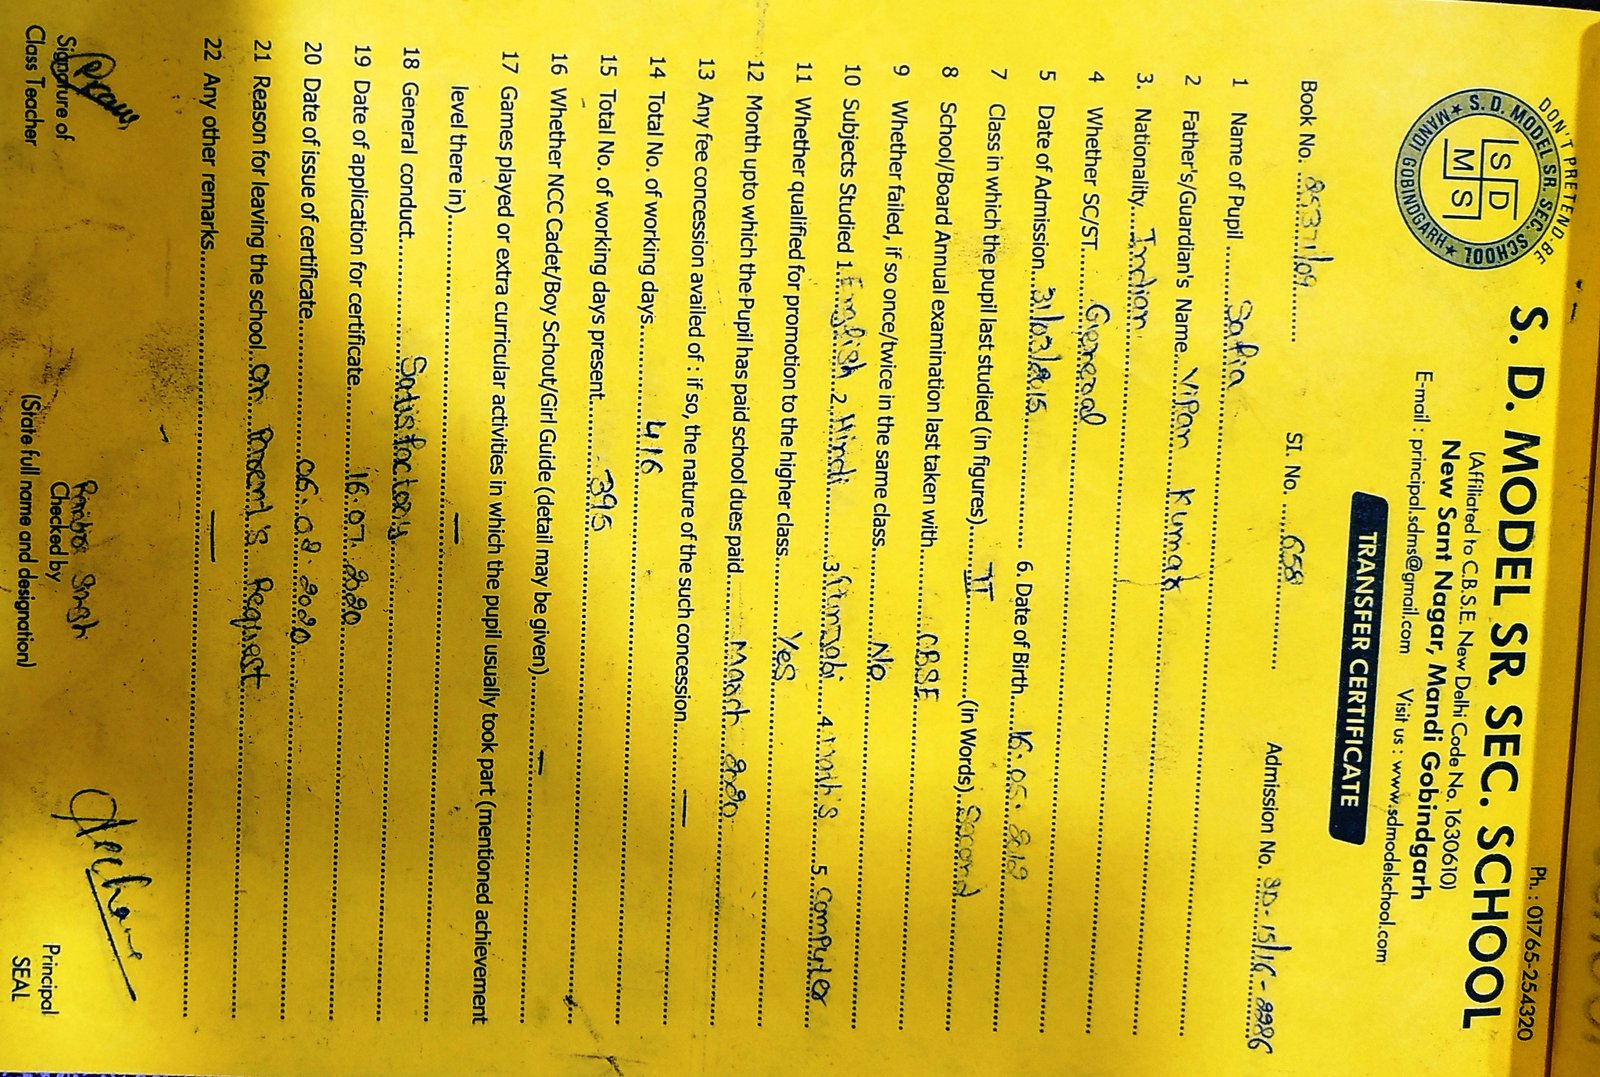 DON'T PRETEND-BE
S. D. MODEL SR. SEC. SCHOOL ★ MANDI GOBINDGARH ★
S D M S
Ph : 01765-254320
S. D. MODEL SR SEC. SCHOOL
(Affiliated to C.B.S.E. New Delhi Code No. 1630610)
New Sant Nagar, Mandi Gobindgarh
E-mail : principal.sdms@gmail.com Visit us : www.sdmodelschool.com
TRANSFER CERTIFICATE
Book No. 8537/09 SI. No. 658 Admission No. SD-15/16-2286
1 Name of Pupil Safia
2 Father's/Guardian's Name VIPan Kumar
3. Nationality Indian
4 Whether SC/ST General
5 Date of Admission 31/03/2015 6. Date of Birth 16.05.2012
7 Class in which the pupil last studied (in figures) II (in Words) Second
8 School/Board Annual examination last taken with CBSE
9 Whether failed, if so once/twice in the same class No
10 Subjects Studied 1. English 2. Hindi 3. Punjabi 4. Math's 5. Computer
11 Whether qualified for promotion to the higher class Yes
12 Month upto which the Pupil has paid school dues paid March 2020
13 Any fee concession availed of : if so, the nature of the such concession. —
14 Total No. of working days 416
15 Total No. of working days present 395
16 Whether NCC Cadet/Boy Schout/Girl Guide (detail may be given) —
17 Games played or extra curricular activities in which the pupil usually took part (mentioned achievement
level there in) —
18 General conduct Satisfactory
19 Date of application for certificate 16.07.2020
20 Date of issue of certificate 06.08.2020
21 Reason for leaving the school. On Parent's Request
22 Any other remarks —
Signature of
Class Teacher
Singh
Checked by
(State full name and designation)
Principal
SEAL